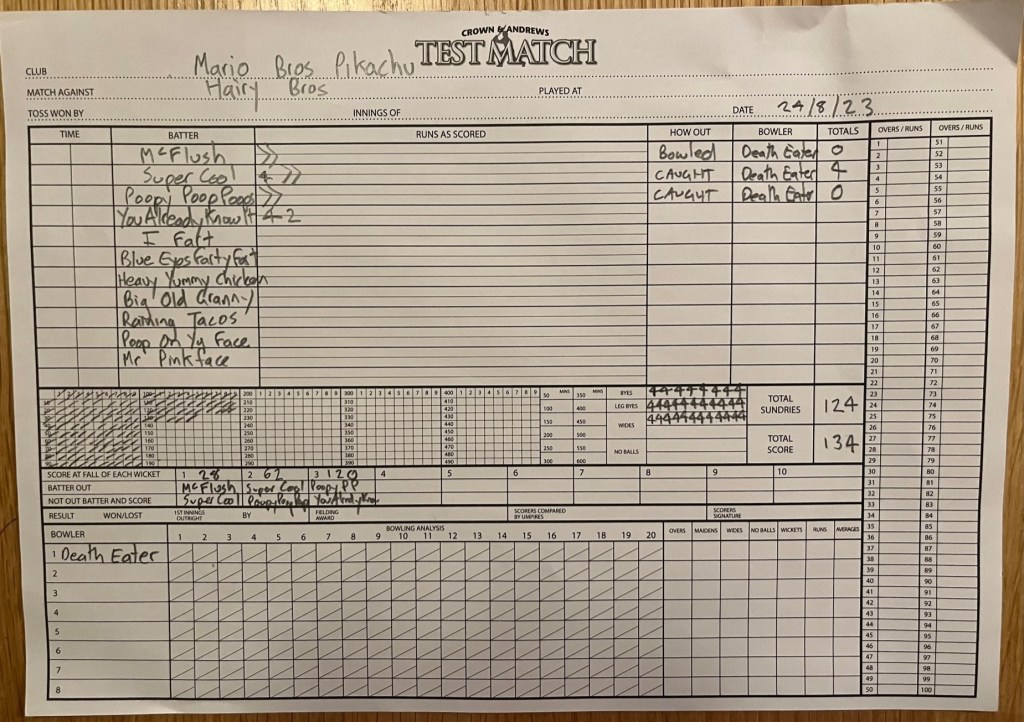 CROWN & ANDREWS
TEST MATCH
CLUB Mario Bros Pikachu
MATCH AGAINST Hairy Bros PLAYED AT
TOSS WON BY INNINGS OF DATE 24/8/23
TIME BATTER RUNS AS SCORED HOW OUT BOWLER TOTALS OVERS / RUNS OVERS / RUNS
McFlush >> Bowled Death Eater 0
Super Cool 4 >> CAUGHT Death Eater 4
Poopy Poop Poops >> CAUGHT Death Eater 0
You Already Know It 4 2
I Fart
Blue Eyes Farty Fart
Heavy Yummy Chicken
Big Old Granny
Raining Tacos
Poop On Yg Face
Mr Pinkface
200 1 2 3 4 5 6 7 8 9 300 1 2 3 4 5 6 7 8 9 400 1 2 3 4 5 6 7 8 9 50 MINS 350 MINS BYES 44444444
210 310 410
220 320 420 100 400 LEG BYES 4444444444 TOTAL SUNDRIES 124
230 330 430 150 450 WIDES 4444444444
140 240 340 440
150 250 350 450 200 500
160 260 360 460 TOTAL SCORE 134
170 270 370 470 250 550 NO BALLS
180 280 380 480
190 290 390 490 300 600
SCORE AT FALL OF EACH WICKET 1 28 2 62 3 120 4 5 6 7 8 9 10
BATTER OUT McFlush Super Cool Poopy PP
NOT OUT BATTER AND SCORE Super Cool Poopy Poop Poop You Already Know
RESULT WON/LOST 1ST INNINGS OUTRIGHT BY FIELDING AWARD SCORERS COMPARED BY UMPIRES SCORERS SIGNATURE
BOWLER BOWLING ANALYSIS OVERS MAIDENS WIDES NO BALLS WICKETS RUNS AVERAGES
1 2 3 4 5 6 7 8 9 10 11 12 13 14 15 16 17 18 19 20
1 Death Eater
2
3
4
5
6
7
8
1 51
2 52
3 53
4 54
5 55
6 56
7 57
8 58
9 59
10 60
11 61
12 62
13 63
14 64
15 65
16 66
17 67
18 68
19 69
20 70
21 71
22 72
23 73
24 74
25 75
26 76
27 77
28 78
29 79
30 80
31 81
32 82
33 83
34 84
35 85
36 86
37 87
38 88
39 89
40 90
41 91
42 92
43 93
44 94
45 95
46 96
47 97
48 98
49 99
50 100